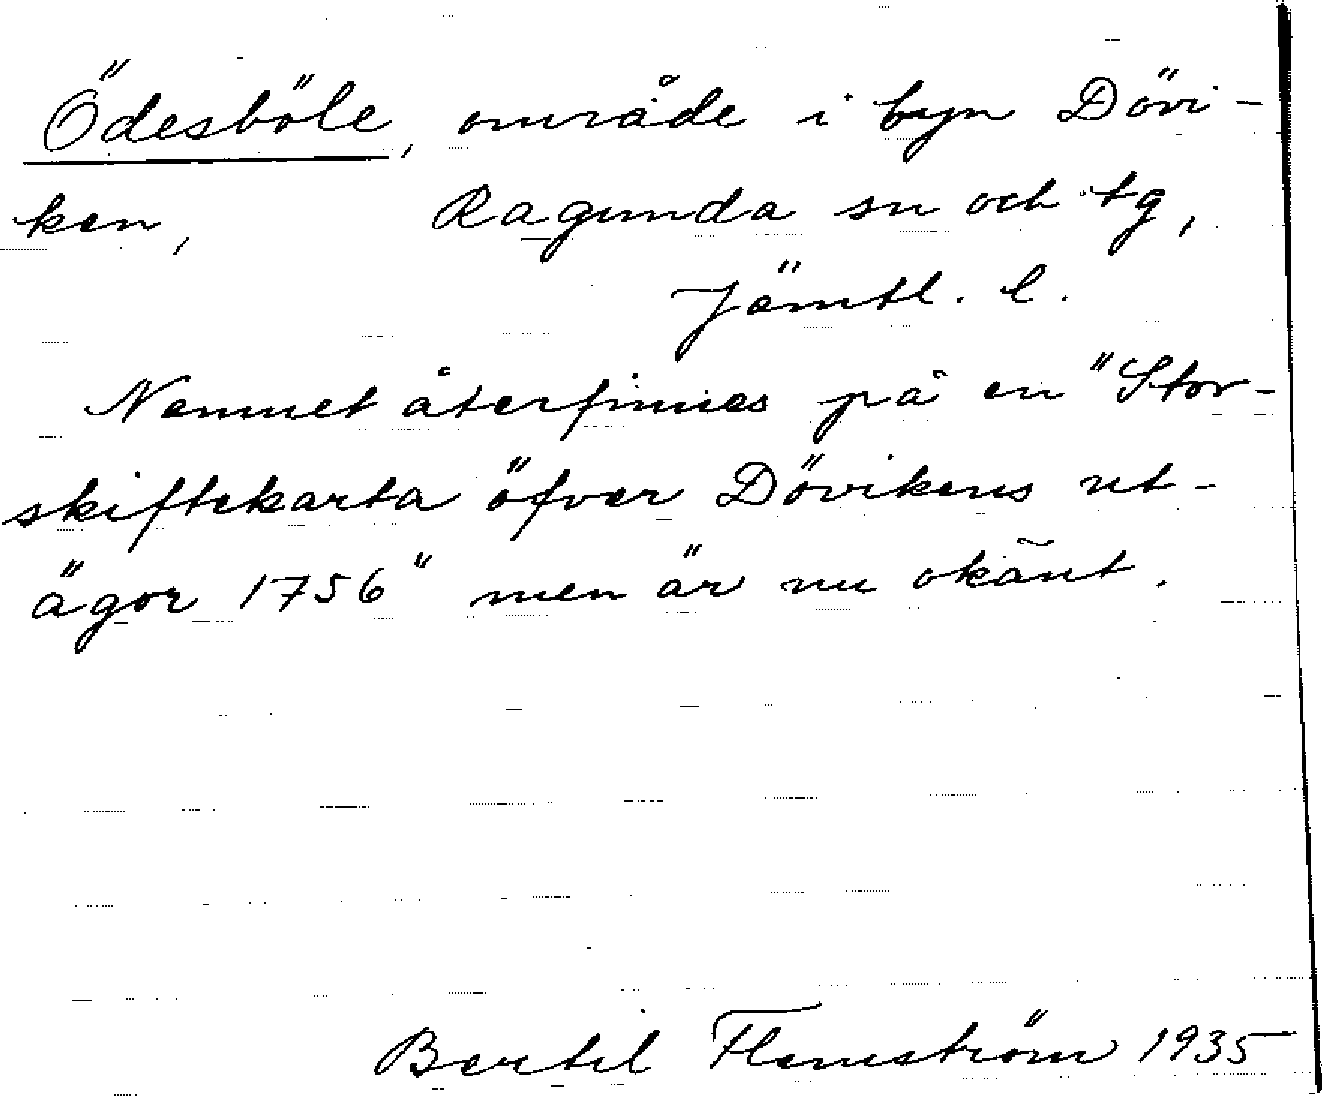 Ödesböle, område i byn Dövi-
ken, Ragunda sn och tg,
Jämtl. l.
Namnet återfinnes på en "Stor-
skiftekarta öfver Dövikens ut-
ägor 1756" men är nu okänt.
Bertil Flemström 1935